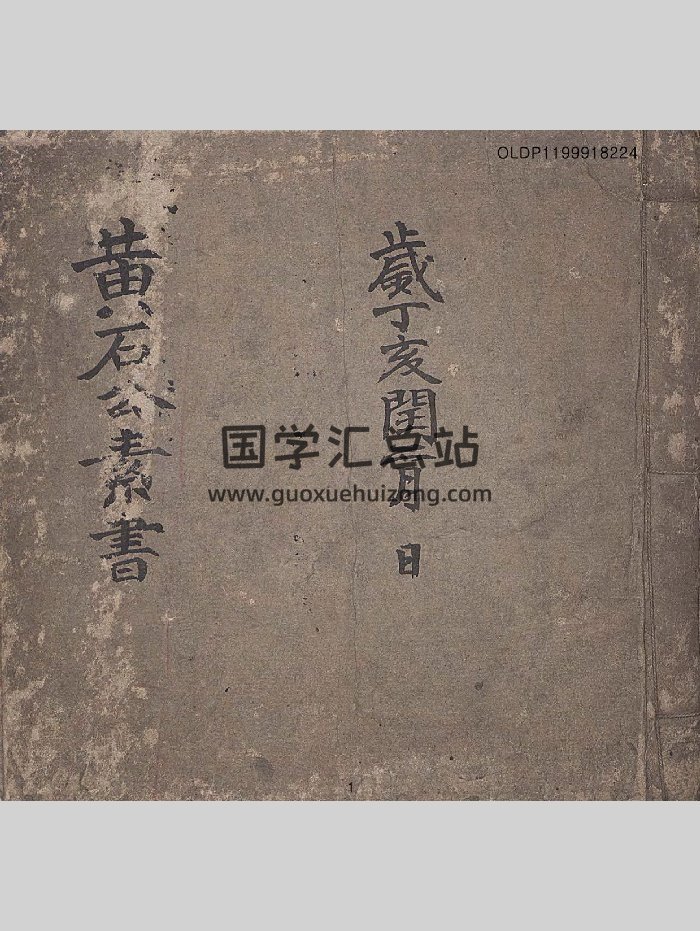 OLDP1199918224
歲丁亥閏月 日
黄石公素書
国学汇总站
www.guoxuehuizong.com
1